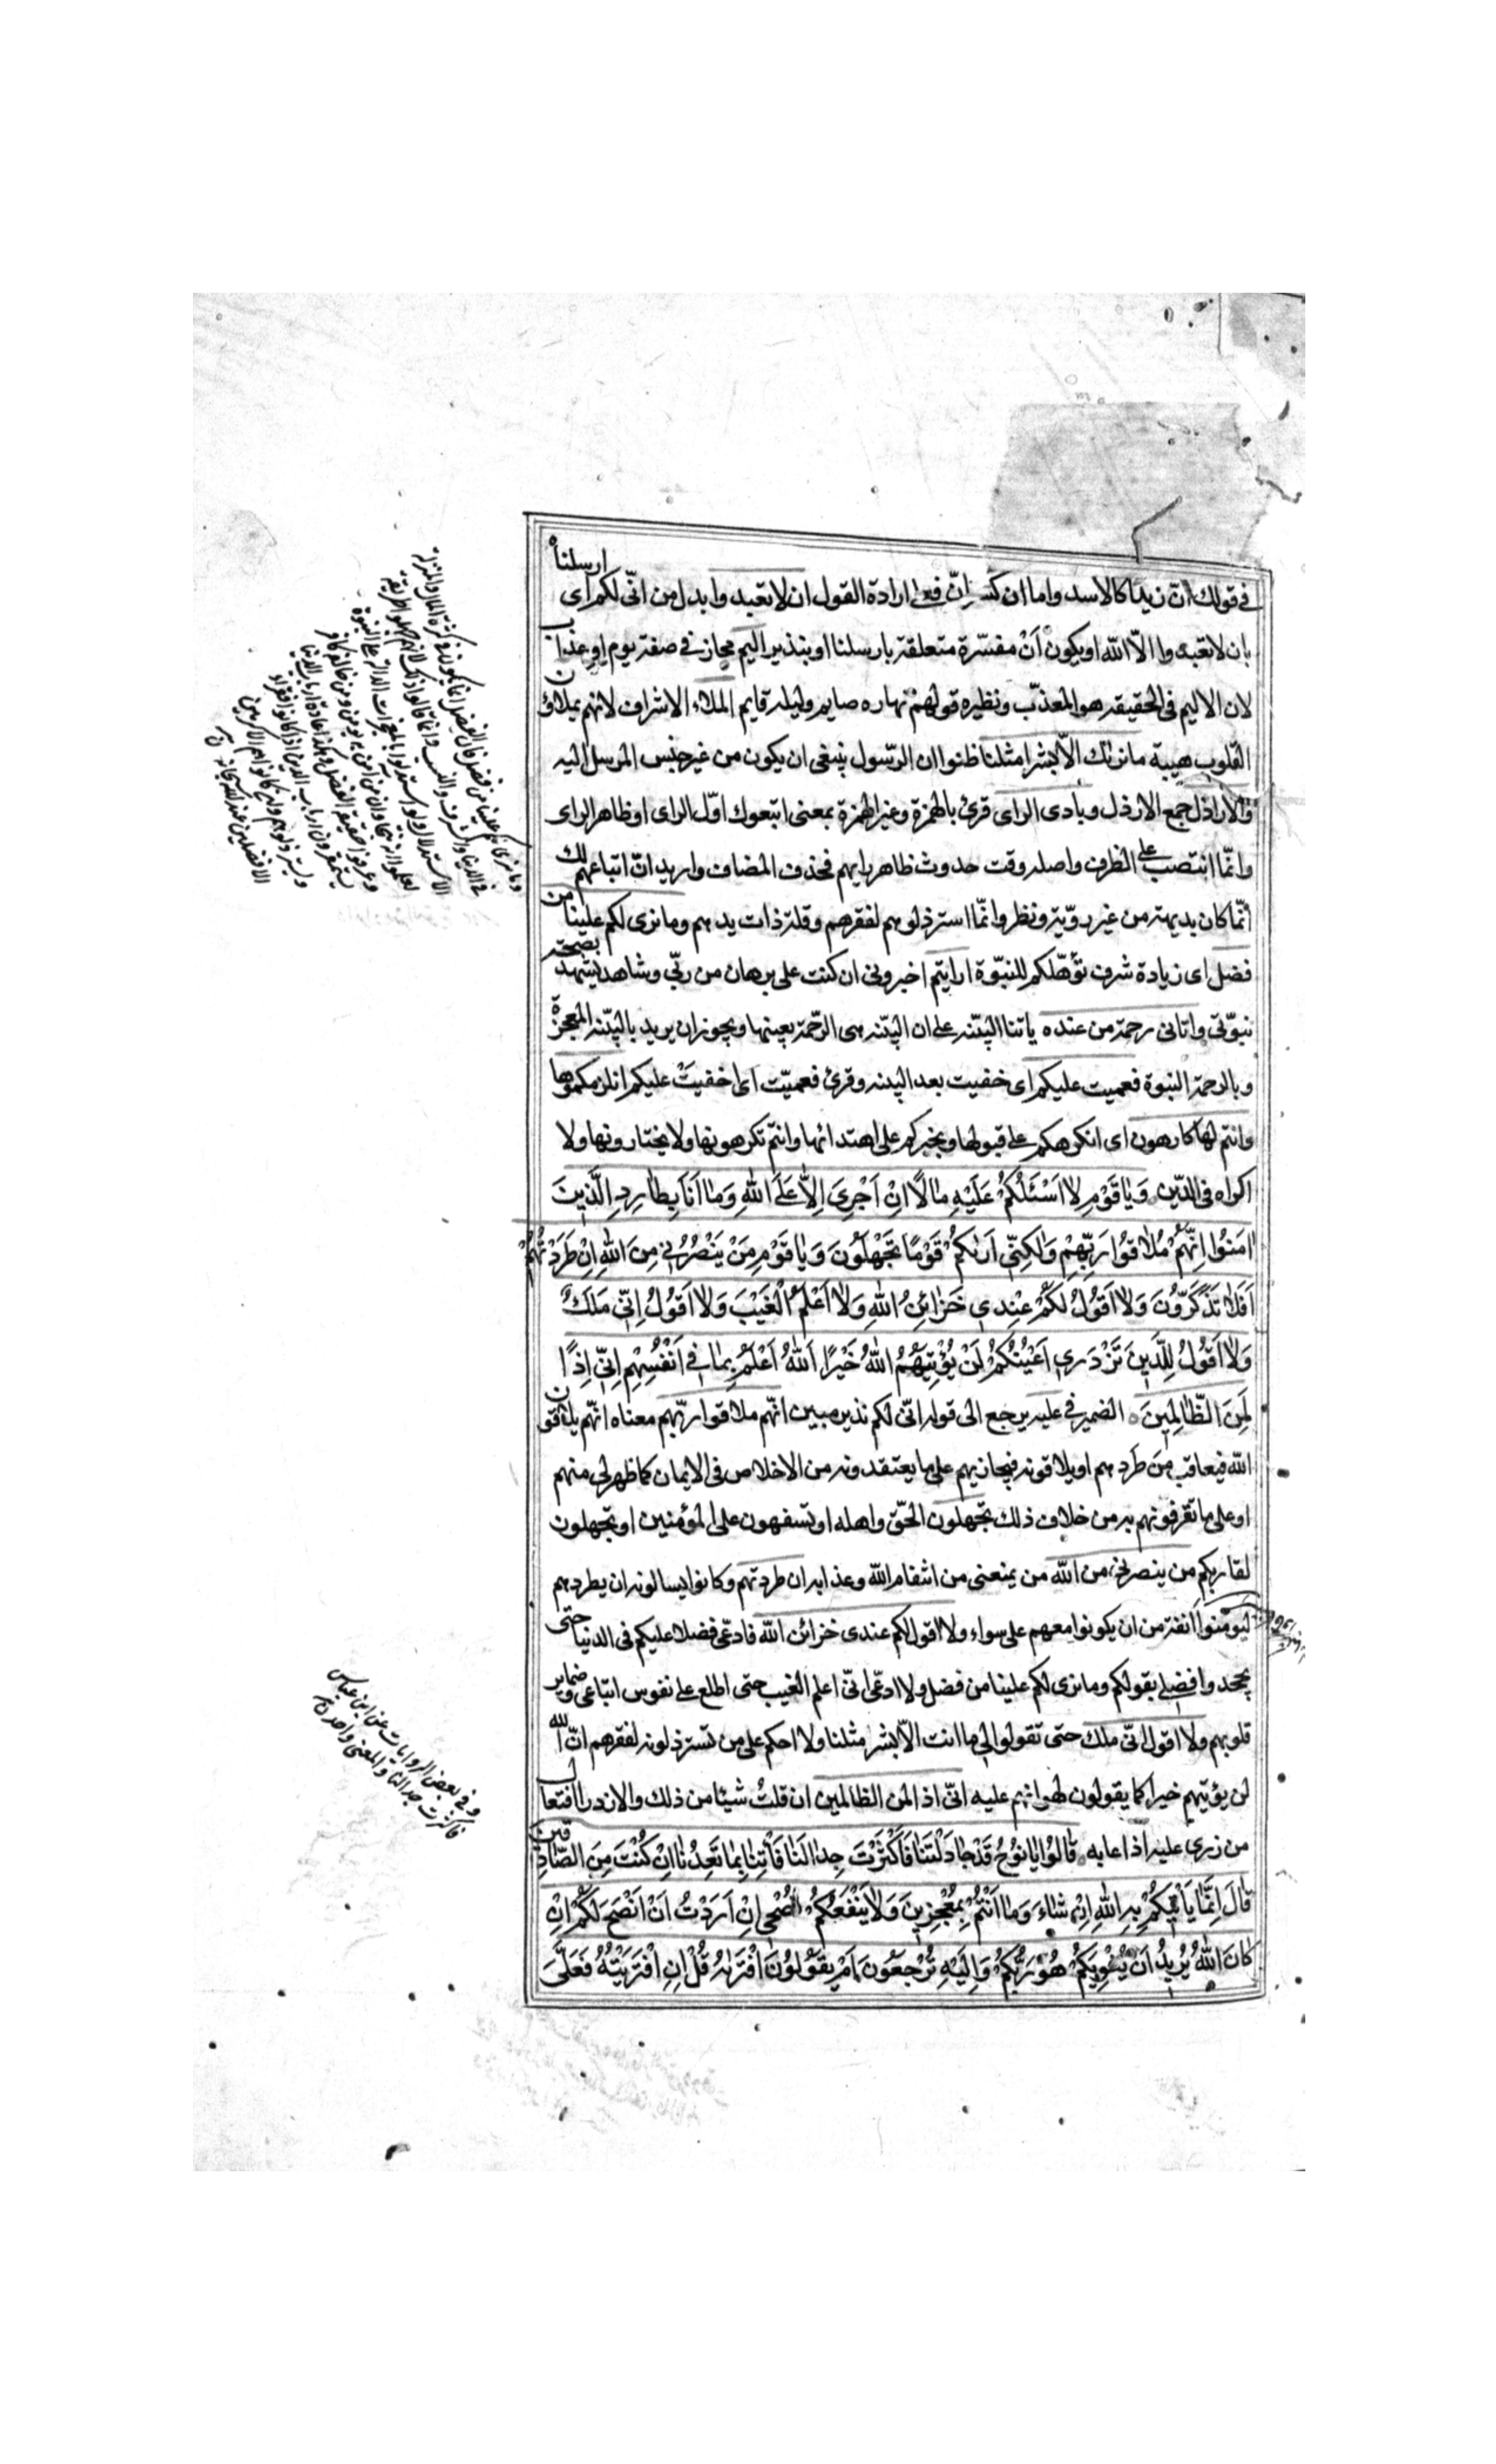 في قولك انّ زيدا كالاسد واما ان كسر انّ فعلى ارادة القول ان لا تعبدوا بدل من انّى لكم اى ارسلناه
بان لا تعبدوا الّا اللّه او يكون اَنْ مفسّرة متعلقة بارسلنا او بنذير اليم مجاز في صفة يوم او عذاب
لان الاليم فى الحقيقة هو المعذّب ونظيره قولهم نهاره صايم وليله قايم الملاء الاشراف لانهم يملاؤن
القلوب هيبة ما نريك الّا بشرا مثلنا ظنوا ان الرّسول ينبغى ان يكون من غير جنس المرسل اليه
والاراذل جمع الارذل وبادى الراى قرئ بالهمزة وغير الهمزة بمعنى اتبعوك اوّل الراى او ظاهر الراى
وانّما انتصب على الظرف واصله وقت حدوث ظاهر رايهم فحذف المضاف واريد انّ اتباعهم لك
انّما كان بديهة من غير رويّة ونظر وانّما استرذلوهم لفقرهم وقلة ذات يدهم وما نرى لكم علينا من
فضل اى زيادة شرف تؤهّلكم للنبوّة ارايتم اخبرونى ان كنت على برهان من ربّى وشاهد يشهد بصحة
نبوّتى واتانى رحمة من عنده ياتنا البيّنة على ان البيّنة هى الرّحمة بعينها ويجوز ان يريد بالبيّنة المعجزة
وبالرحمة النبوة فعميت عليكم اى خفيت بعد البينة وقرئ فعميّت اى اخفيت عليكم انلزمكموها
وانتم لها كارهون اى انكرهكم على قبولها ونجبركم على اهتدائها وانتم تكرهونها ولا تختارونها ولا
اكراه فى الدّين وَيَا قَوْمِ لَا اَسْئَلُكُمْ عَلَيْهِ مَالًا اِنْ اَجْرِىَ اِلَّا عَلَى اللّهِ وَمَا اَنَا بِطَارِدِ الَّذِينَ
اٰمَنُوا اِنَّهُمْ مُلَاقُوا رَبِّهِمْ وَلٰكِنِّى اَرٰيكُمْ قَوْمًا تَجْهَلُونَ وَيَا قَوْمِ مَنْ يَنْصُرُنِى مِنَ اللّهِ اِنْ طَرَدْتُهُمْ
اَفَلَا تَذَكَّرُونَ وَلَا اَقُولُ لَكُمْ عِنْدِى خَزَائِنُ اللّهِ وَلَا اَعْلَمُ الْغَيْبَ وَلَا اَقُولُ اِنِّى مَلَكٌ
وَلَا اَقُولُ لِلَّذِينَ تَزْدَرِى اَعْيُنُكُمْ لَنْ يُؤْتِيَهُمُ اللّهُ خَيْرًا اَللّهُ اَعْلَمُ بِمَا فِى اَنْفُسِهِمْ اِنِّى اِذًا
لَمِنَ الظَّالِمِينَ الضمير في عليه يرجع الى قوله انّى لكم نذير مبين انّهم ملاقوا ربّهم معناه انّهم يلاقون
اللّه فيعاقب من طردهم او يلاقونه فيجازيهم على ما يعتقدونه من الاخلاص فى الايمان كما ظهر لى منهم
او على ما تقرفونهم به من خلاف ذلك تجهلون الحقّ واهله او تسفهون على المؤمنين او تجهلون
لقاء ربكم من ينصرنى من اللّه من يمنعنى من انتقام اللّه وعذابه ان طردتهم وكانوا يسالونه ان يطردهم
ليؤمنوا انفة من ان يكونوا معهم على سواء ولا اقول لكم عندى خزائن اللّه فادّعى فضلا عليكم فى الدنيا حتى
تجحدوا فضلى بقولكم وما نرى لكم علينا من فضل ولا ادعّى انّى اعلم الغيب حتى اطلع على نفوس اتباعى وضماير
قلوبهم ولا اقول انّى ملك حتى تقولوا لى ما انت الّا بشر مثلنا ولا احكم على من تسترذلونه لفقرهم انّ اللّه
لن يؤتيهم خيرا كما يقولون لهوانهم عليه انّى اذا لمن الظالمين ان قلتُ شيئا من ذلك والازدراء افتعال
من زرى عليه اذا عابه قَالُوا يَا نُوحُ قَدْ جَادَلْتَنَا فَاَكْثَرْتَ جِدَالَنَا فَأْتِنَا بِمَا تَعِدُنَا اِنْ كُنْتَ مِنَ الصَّادِقِينَ
قَالَ اِنَّمَا يَأْتِيكُمْ بِهِ اللّهُ اِنْ شَاءَ وَمَا اَنْتُمْ بِمُعْجِزِينَ وَلَا يَنْفَعُكُمْ نُصْحِى اِنْ اَرَدْتُ اَنْ اَنْصَحَ لَكُمْ اِنْ
كَانَ اللّهُ يُرِيدُ اَنْ يُغْوِيَكُمْ هُوَ رَبُّكُمْ وَاِلَيْهِ تُرْجَعُونَ اَمْ يَقُولُونَ افْتَرٰيهُ قُلْ اِنِ افْتَرَيْتُهُ فَعَلَىَّ
وفي بعض الروايات عن ابن عباس
فاكثرت جدلنا والمعنى واحد